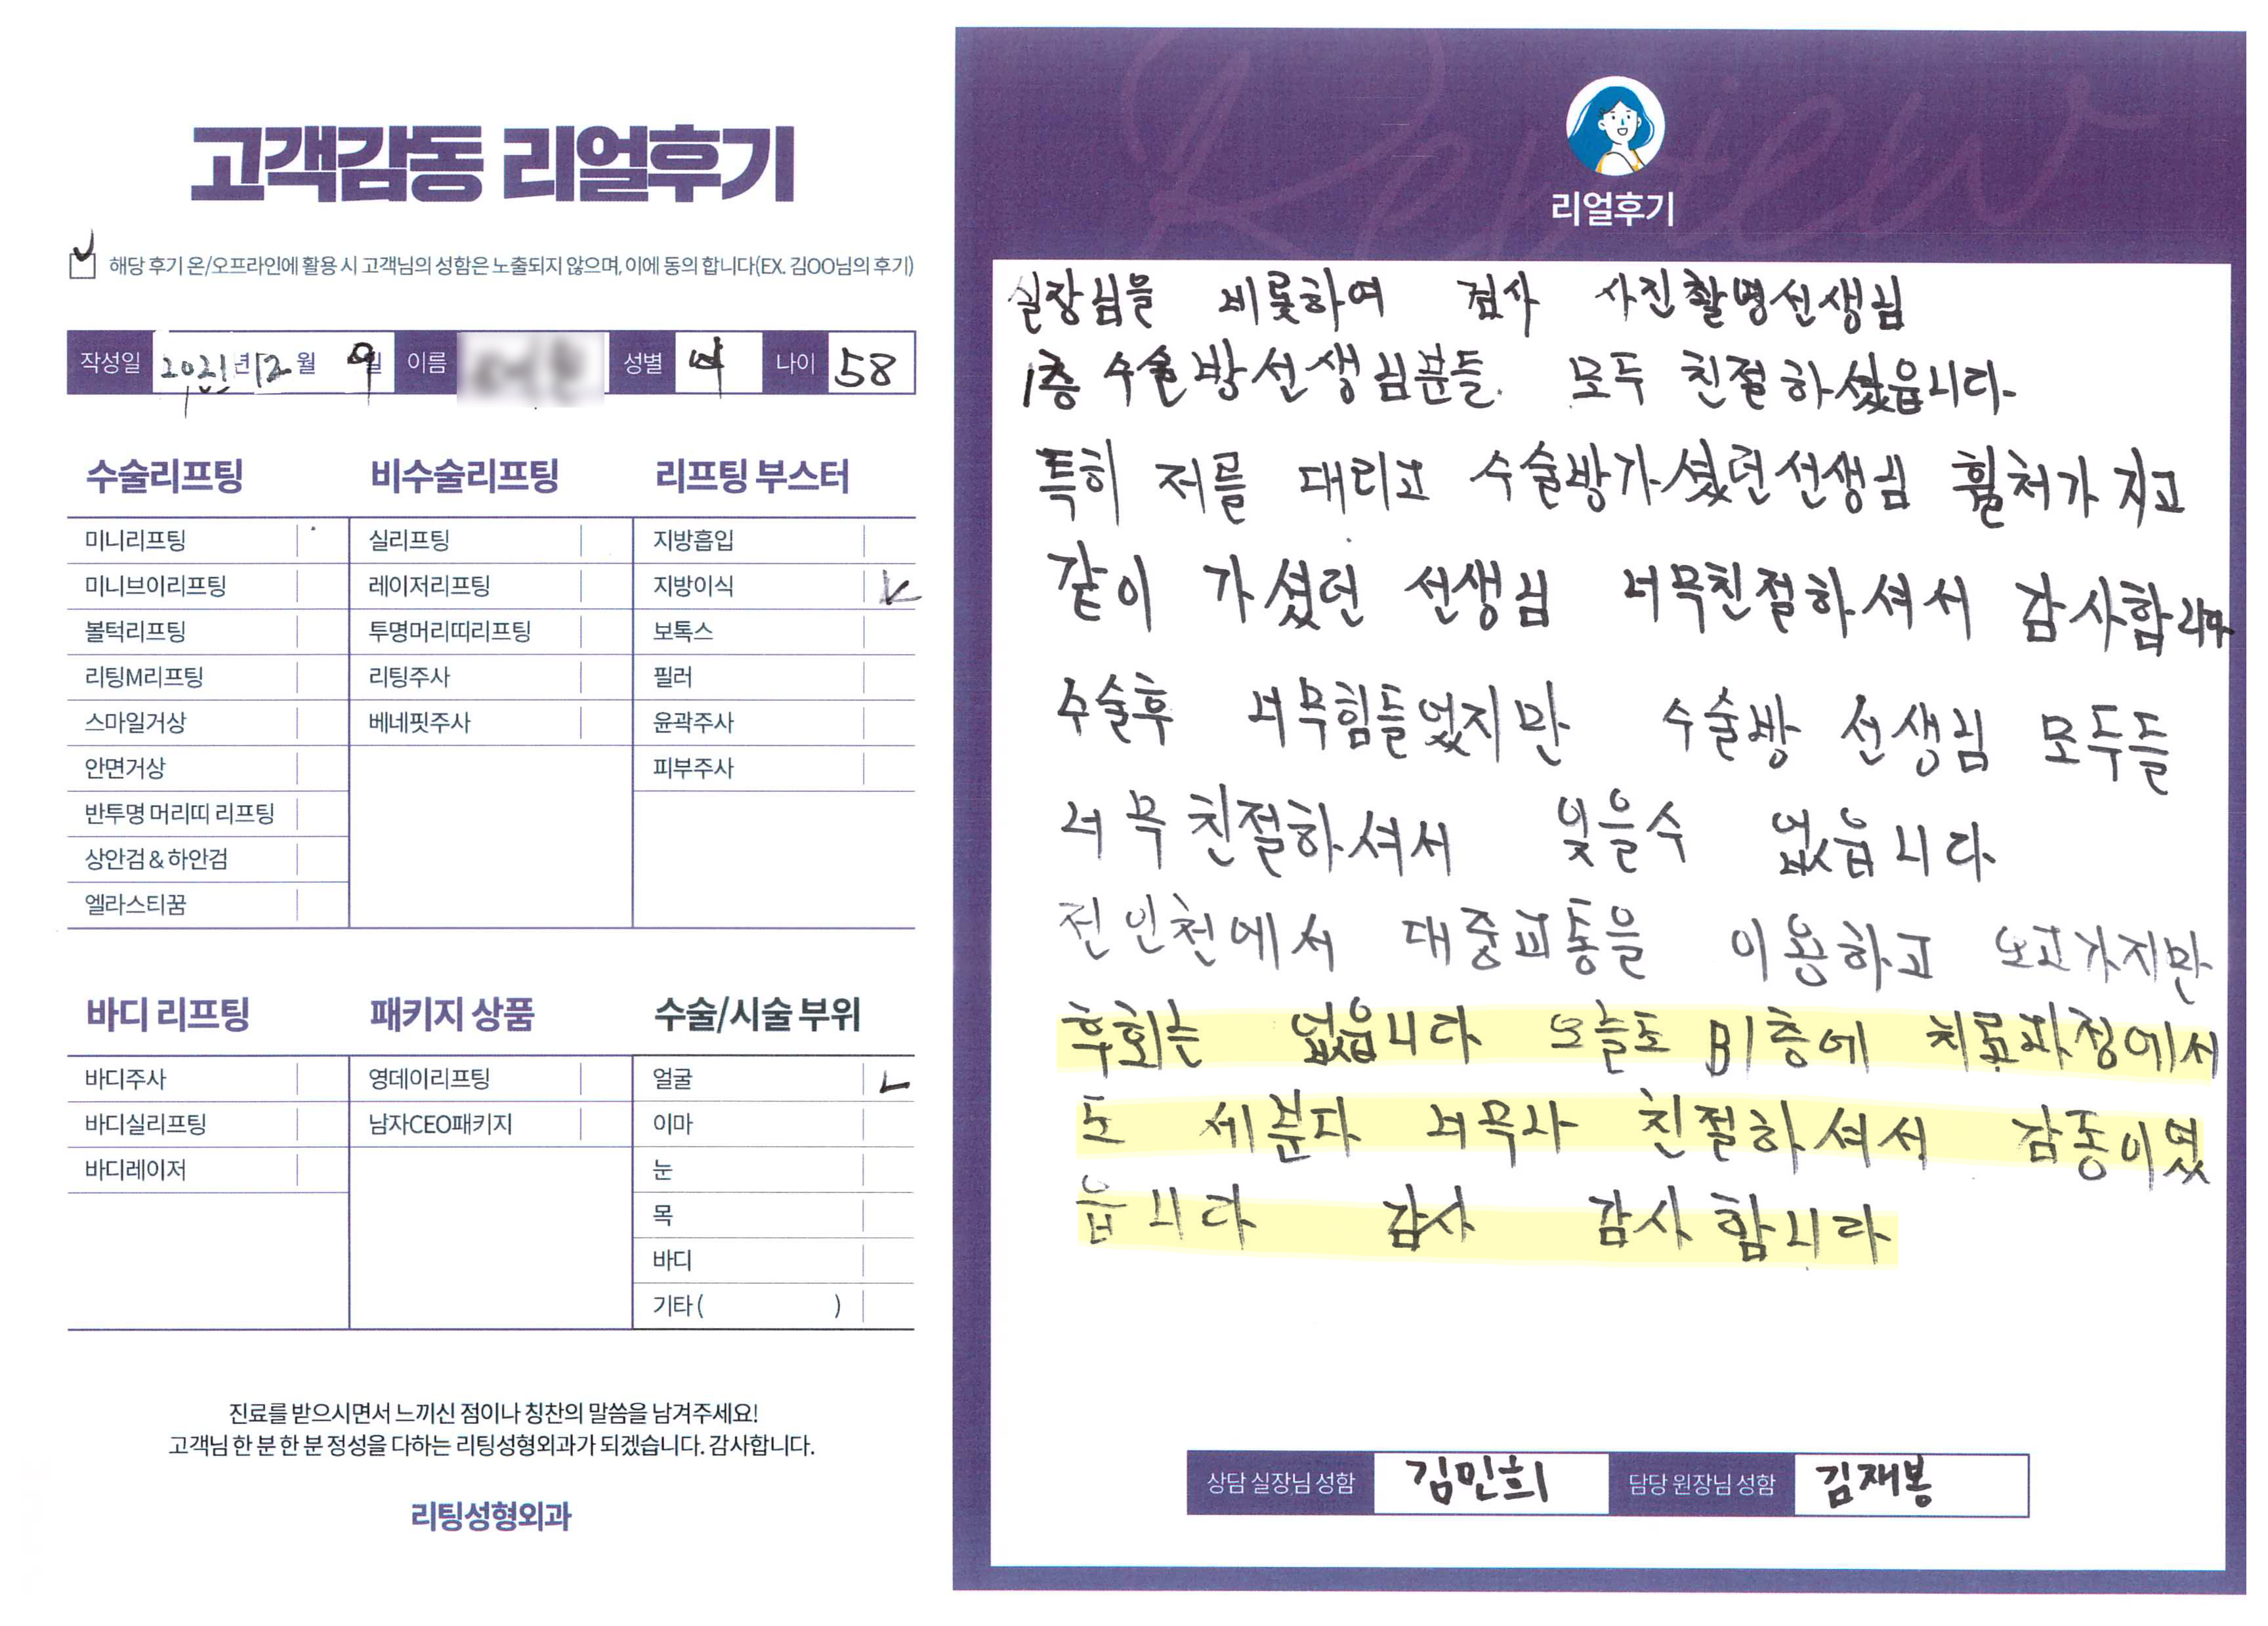 고객감동 리얼후기
해당 후기 온/오프라인에 활용 시 고객님의 성함은 노출되지 않으며, 이에 동의 합니다(EX. 김OO님의 후기)
작성일 2021년 12월 9일 이름 성별 여 나이 58
수술리프팅 비수술리프팅 리프팅 부스터
미니리프팅 실리프팅 지방흡입
미니브이리프팅 레이저리프팅 지방이식
볼턱리프팅 투명머리띠리프팅 보톡스
리팅M리프팅 리팅주사 필러
스마일거상 베네핏주사 윤곽주사
안면거상 피부주사
반투명 머리띠 리프팅
상안검 & 하안검
엘라스티꿈
바디 리프팅 패키지 상품 수술/시술 부위
바디주사 영데이리프팅 얼굴
바디실리프팅 남자CEO패키지 이마
바디레이저 눈
목
바디
기타 ( )
진료를 받으시면서 느끼신 점이나 칭찬의 말씀을 남겨주세요!
고객님 한 분 한 분 정성을 다하는 리팅성형외과가 되겠습니다. 감사합니다.
리팅성형외과
Review
리얼후기
실장님을 비롯하여 검사 사진촬영선생님
1층 수술방선생님분들. 모두 친절하셨읍니다.
특히 저를 대리고 수술방가셨던선생님 휠처가 지고
같이 가셨던 선생님 너무친절하셔서 감사함니다
수술후 너무힘들었지만 수술방 선생님 모두들
너무 친절하셔서 잊을수 없읍니다
전인천에서 대중교통을 이용하고 오고가지만
후회는 없읍니다 오늘도 B1층에 치료과정에서
도 세분다 너무나 친절하셔서 감동이였
읍니다 감사 감사함니다
상담 실장님 성함 김민희 담당 원장님 성함 김재봉